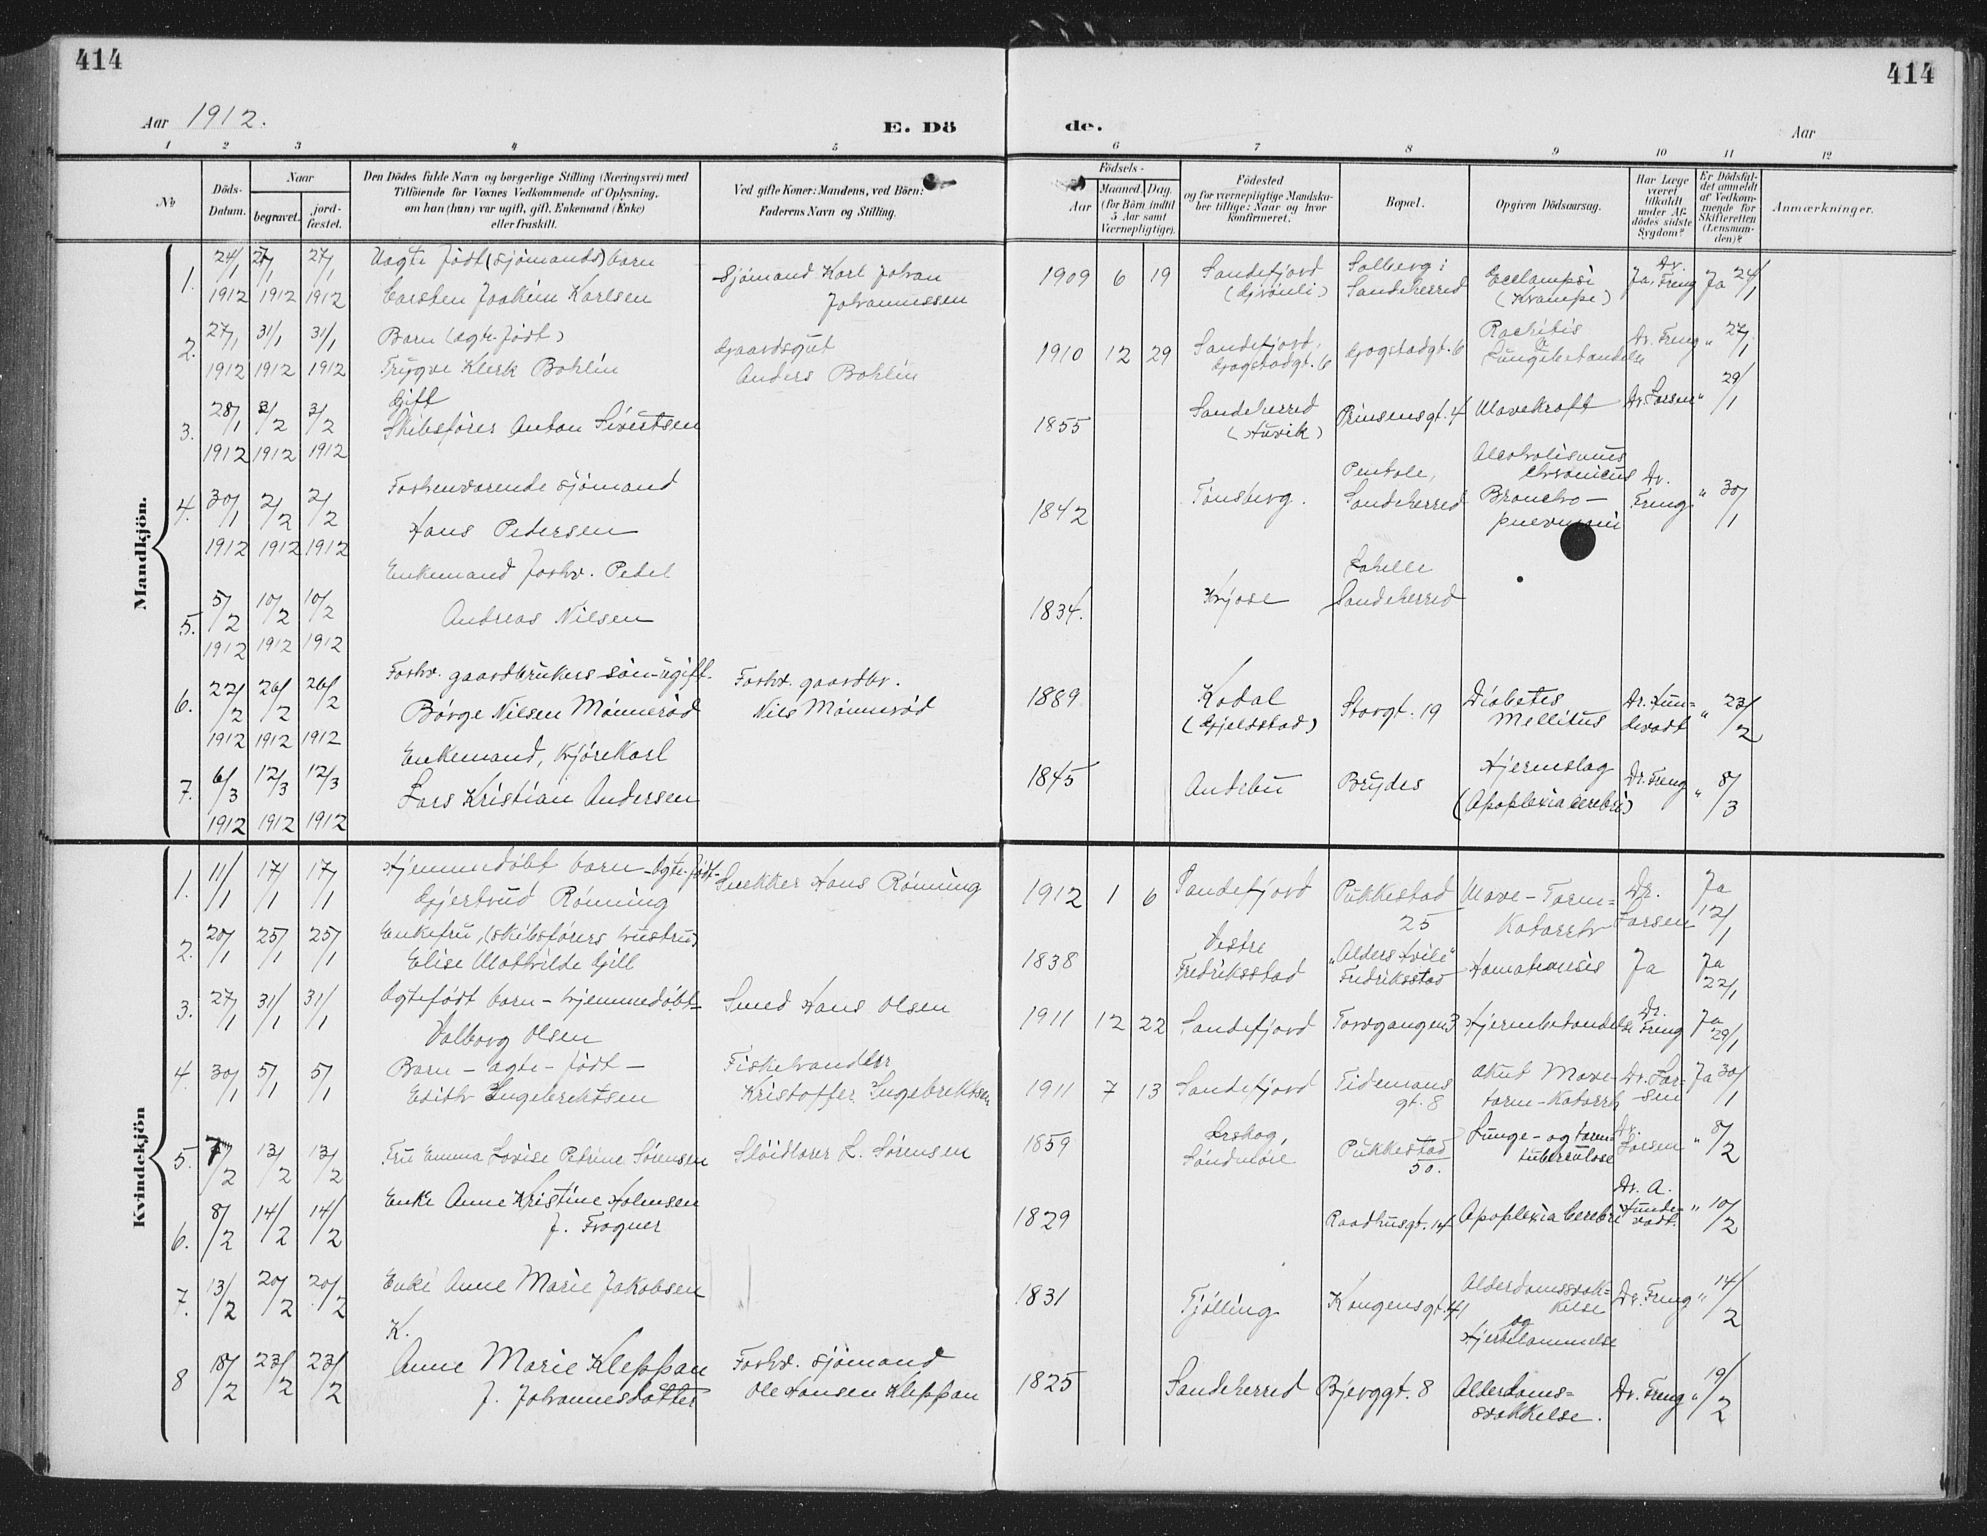 414
414
Aar 1912.
E. Dö
de.
Aar
1 2 3 4 5 6 7 8 9 10 11 12
No
Döds-Datum.
Naar
begravet.
jord-fæstet.
Den Dödes fulde Navn og borgerlige Stilling (Næringsvei) med
Tilföiende for Voxnes Vedkommende af Oplysning,
om han (hun) var ugift, gift, Enkemand (Enke)
eller fraskilt.
Ved gifte Koner: Mandens, ved Börn:
Faderens Navn og Stilling.
Födsels-
Aar
Maaned. Dag.
(for Börn indtil
5 Aar samt
Værnepligtige).
Födested
og for værnepligtige Mandska-
ber tillige: Naar og hvor
Konfirmeret.
Bopæl.
Opgiven Dödsaarsag.
Har Læge
været
tilkaldt
under Af-
dödes sidste
Sygdom?
Er Dödsfal-
det anmeldt
af Vedkom-
mende for
Skifteretten
(Lensman-
den)?
Anmærkninger.
Mandkjön.
1. 24/1 1912 27/1 1912 27/1 1912 født (sjømands) barn
Carsten Joakim Karlsen
Sjømand Karl Johan
Johannessen
1909 6 19 Sandefjord
Solberg i
Sandeherred
Eclampsi
(Krampe)
Ja, Dr. Freng
Ja 24/1
2. 27/1 1912 31/1 1912 31/1 1912 Barn (ægte født)
Trygve Klerk Bohlin
Gaardsgut
Anders Bohlin
1910 12 29 Sandefjord,
Gogstadgt. 6
Gogstadgt. 6
Rachitis
Dr. Freng " 27/1
3. 28/1 1912 3/2 1912 3/2 1912 Gift
Skibsfører Anton Sivertsen
1855 Sandeherred
Prinsensgt. 4
Mavekræft
Dr. Larsen " 29/1
4. 30/1 1912 2/2 1912 2/2 1912 Forhenværende sjømand
Hans Pedersen
1842 Tønsberg.
Sandeherred
Alcoholismus
chronicus
Broncho-
Dr.
Freng " 30/1
5. 5/2 1912 10/2 1912 10/2 1912 Enkemand forhv. Pedel
Andreas Nilsen
1834. Kjose
Sandeherred
6. 22/2 1912 26/2 1912 26/2 1912 Forhv. gaardbrukers søn-ugift.
Børge Nilsen Mønnerød
Forhv. gaardbr.
Nils Mønnerød
1889 Kodal
(Gjeldstad)
Storgt. 19
Diabetes
Mellitus
" 23/2
7. 6/3 1912 12/3 1912 12/3 1912 Enkemand, Kjørekarl
Lars Kristian Andersen
1845 Andebu
Brydes
Hjerneslag
(Apoplexia cerebri)
Dr. Freng " 8/3
Kvindekjön
1. 11/1 17/1 17/1 Hjemmedøbt barn - Ægte født-
Gjertrud Rønning
Snekker Hans Rønning
1912 1 6 Sandefjord
Pukkestad
25
Mave-Tarm-
Katarrh
Dr.
Larsen
Ja
12/1
2. 20/1 25/1 25/1 Enkefru, (skibsførers hustru)
Elise Mathilde Gill
1838 Vestre
Fredriksstad
"Alders Hvile"
Fredriksstad
Ja
Ja
22/1
3. 27/1 31/1 31/1 Ægtefødt barn - hjemmedøbt-
Valborg Olsen
Smed Hans Olsen
1911 12 22 Sandefjord
Torvgangen 3
Dr.
Freng
Ja
29/1
4. 30/1 5/1 5/1 Barn - ægte - født -
Edith Engebrektsen
Fiskehandler
Kristoffer Engebrektsen
1911 7 13 Sandefjord
Tidemans
gt. 8
akut Mave-
tarm-Katarrh
Dr. Lar-
sen
Ja 30/1
5. 7/2 13/2 13/2 Fru Emma Lovise Petrine Sørensen
Sløidlærer L. Sørensen
1859 Ørskog,
Søndmøre
Pukkestad
50.
Lunge- og tarm-
tuberculose
Dr.
Larsen " 8/2
6. 8/2 14/2 14/2 Enke Anne Kristine Holmsen
f. Frogner
1829
Raadhusgt. 14
Apoplexia Cerebri
Dr. A.
" 10/2
7. 13/2 20/2 20/2 Enke Anne Marie Jakobsen
1831 Tjølling
Kongensgt. 41
Alderdomssvæk-
kelse
og
Hjertelammelse
Dr. Freng " 14/2
8 18/2 23/2 23/2 K.
Anne Marie Kleppan
f. Johannesdatter
Forhv. sjømand
Ole Hansen Kleppan
1825 Sandeherred
Bjerggt. 8
Alderdoms-
svækkelse.
Dr. Freng " 19/2